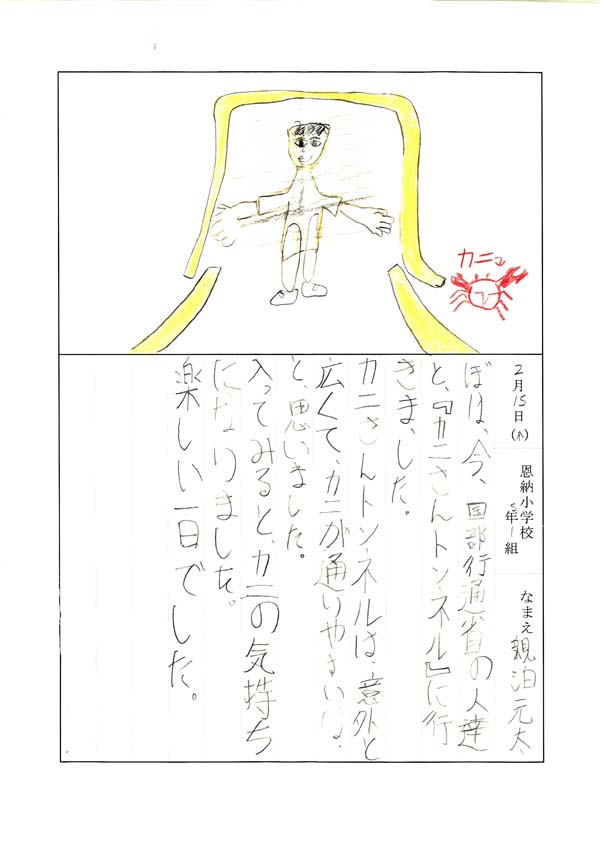 カニ
2月15日(木) 恩納小学校 5年1組 なまえ 親泊元太
ぼくは、今、国部行通省の人達
と、『カニさんトンネル』に行
きました。
カニさんトンネルは、意外と
広くて、カニが通りやすいな、
と、思いました。
入ってみると、カニの気持ち
になりました。
楽しい一日でした。